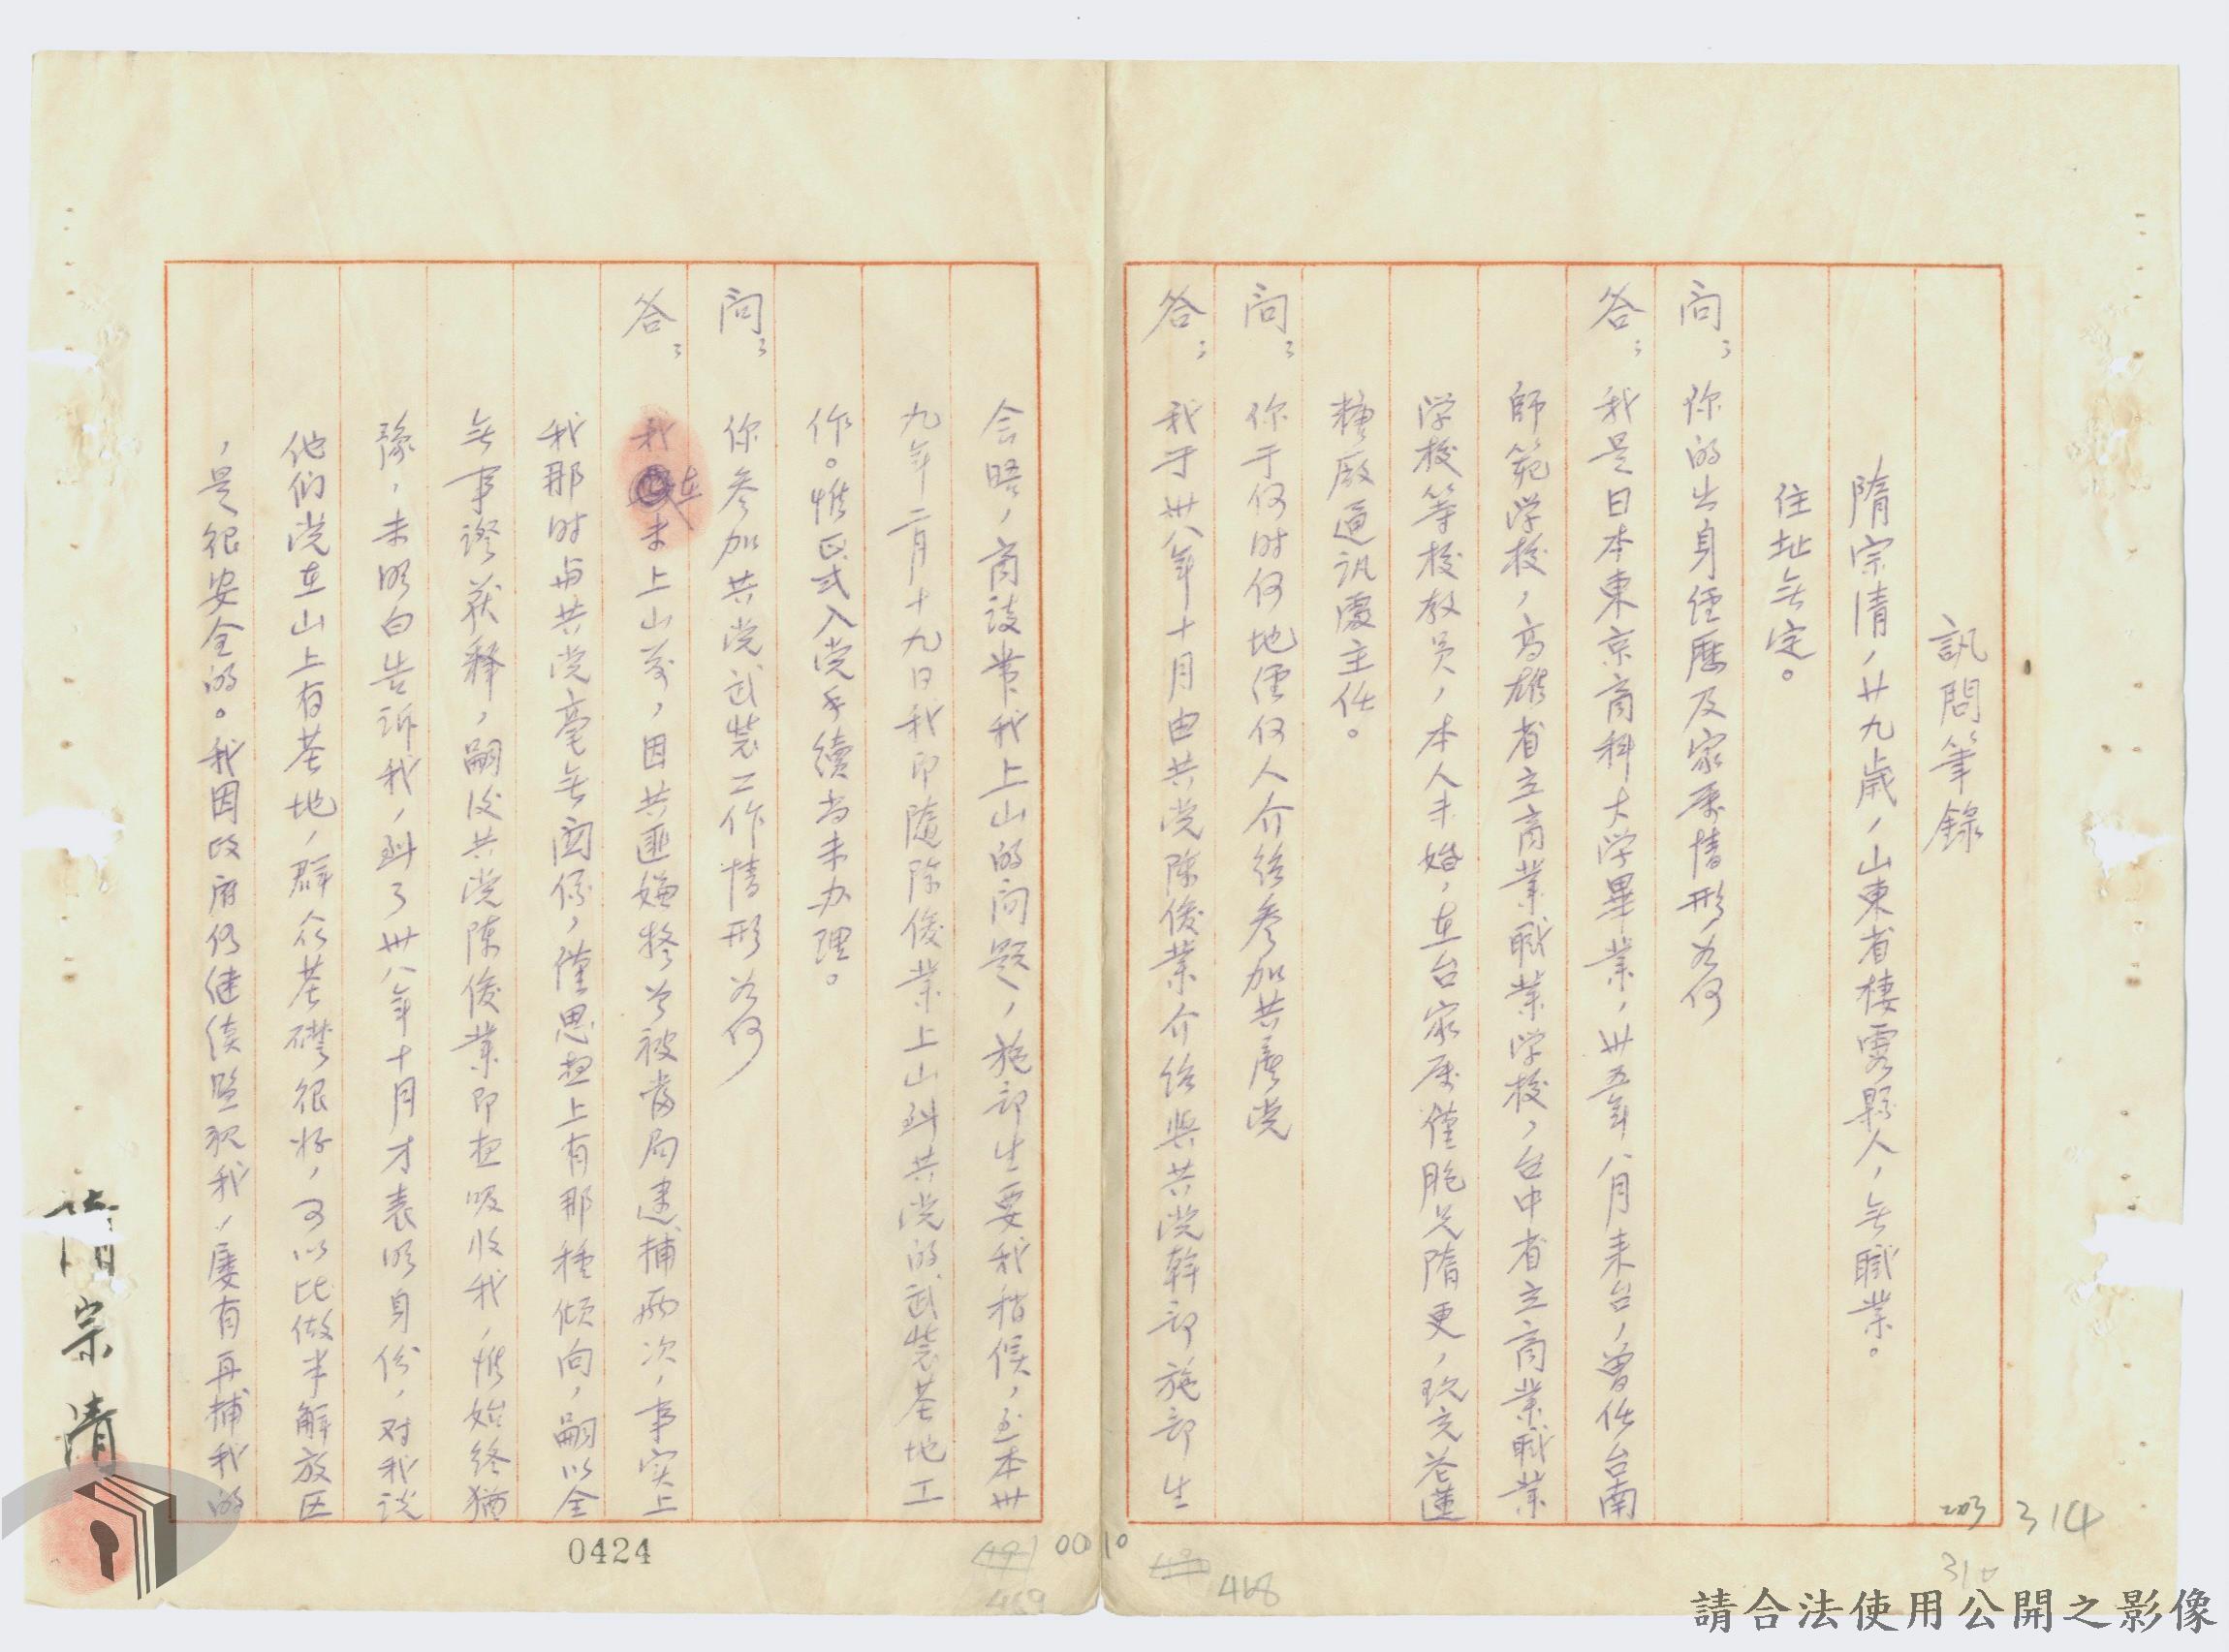 訊問筆錄
隋宗清，廿九歲，山東省棲霞縣人，無職業。
住址無定。
問：你的出身經歷及家屬情形为何
答：我是日本東京商科大学畢業，卅五年八月来台，曾任台南
師範学校，高雄省立商業職業学校，台中省立商業職業
学校等校教員，本人未婚，在台家屬僅胞兄隋更，現充花蓮
糖廠通訊處主任。
問：你于何时何地經何人介绍参加共產党
答：我于卅八年十月由共党陳俊業介绍與共党幹部施部生
会晤，商談帶我上山的问题，施部生要我稍候，至本卅
九年二月十九日我即隨陳俊業上山到共党的武裝基地工
作。惟正式入党手續尚未办理。
問：你参加共党武裝工作情形为何
答：我在未上山前，因共匪嫌疑曾被當局逮捕兩次，事实上
我那时与共党毫無関係，僅思想上有那种傾向，嗣以全
無事證获釋，嗣後共党陳俊業即想吸收我，惟始終猶
豫，未明白告訴我，到了卅八年十月才表明身份，对我說
他们党在山上有基地，群众基礎很好，可以比做半解放区
，是很安全的。我因政府仍继续監視我，屡有再捕我的
隋宗清
0424
0010
468
469
203
314
310
請合法使用公開之影像